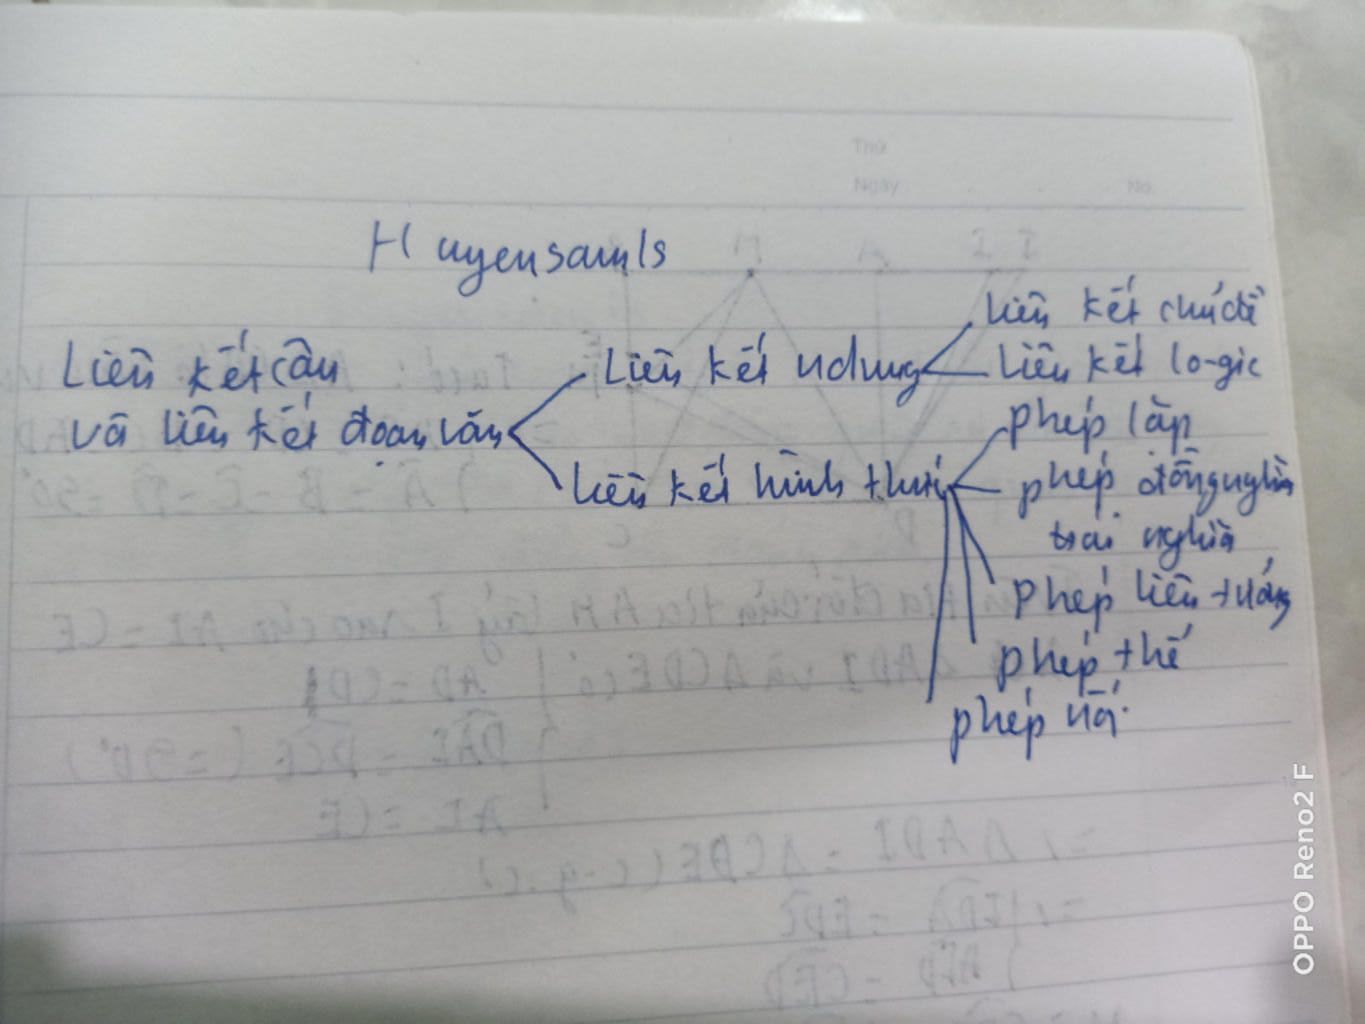 Thứ
Ngày
No.
Huyensam1s
Liên kết câu
và liên kết đoạn văn
Liên kết ndung
Liên kết chủ đề
Liên kết lo-gic
Liên kết hình thức
phép lặp
phép đồng nghĩa
trái nghĩa
phép liên tưởng
phép thế
phép nối
OPPO Reno2 F